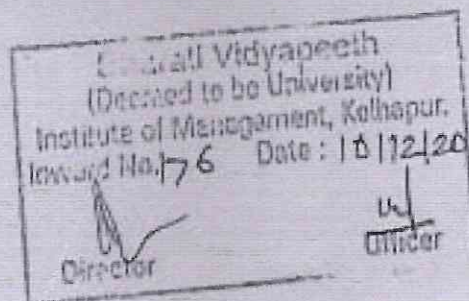 Vidyapeeth
(Deemed to be University)
Institute of Management, Kolhapur.
Inward No. 176 Date : 10/12/20
Director Officer